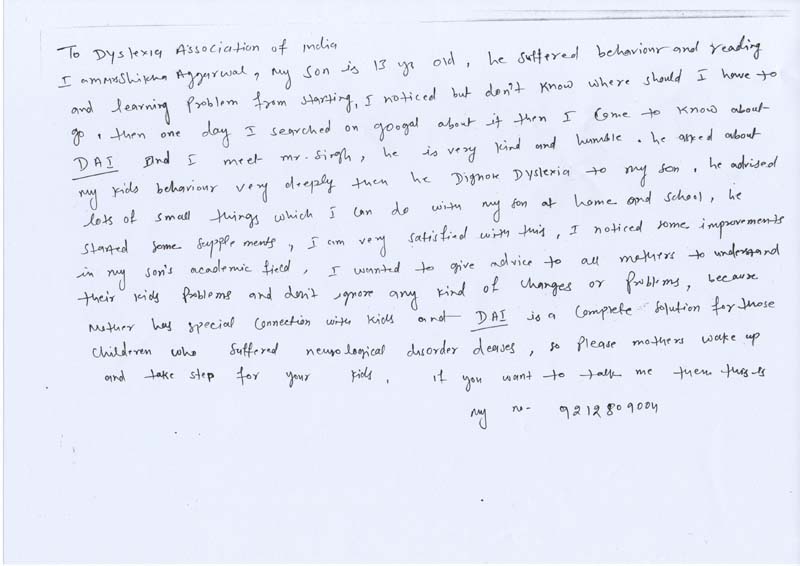 To Dyslexia Association of India
I am mrs Shikha Aggarwal, My Son is 13 yr old, he suffered behaviour and reading
and learning Problem from starting, I noticed but don't know where should I have to
go, then one day I searched on googal about it then I Come to know about
DAI And I meet mr. Singh, he is very kind and humble. he asked about
my kids behaviour very deeply then he Dignose Dyslexia to my son, he advised
lots of small things which I Can do with my son at home and school, he
started some supplements, I am very satisfied with this, I noticed some improvements
in my son's academic field, I wanted to give advice to all mothers to understand
their kids Problems and don't ignore any kind of changes or Problems, because
Mother has special Connection with kids and DAI is a Complete Solution for those
Childeren who Suffered neurological disorder deases, so Please mothers wake up
and take step for your kids. if you want to talk me then this is
my no- 9212809004